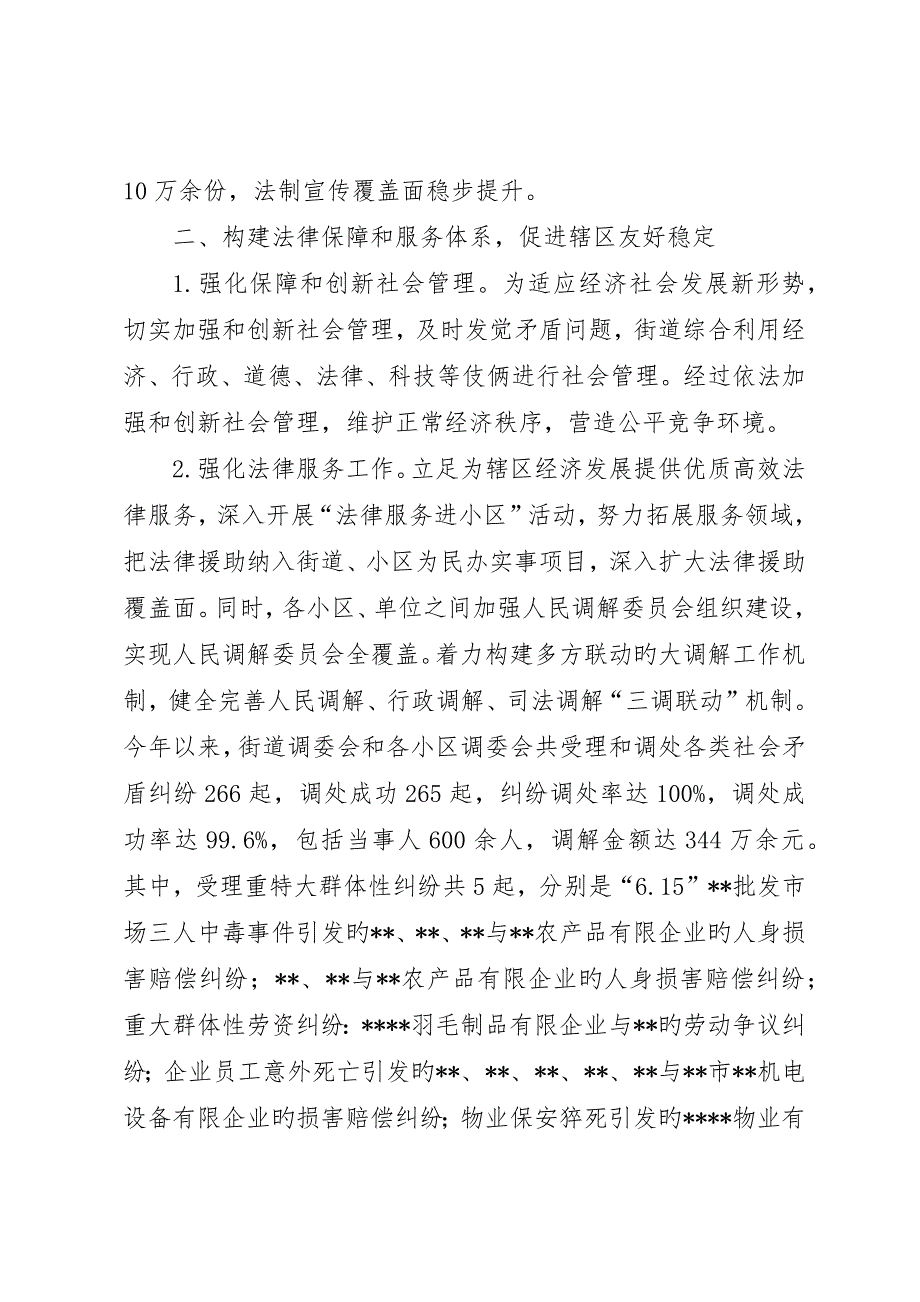 10 万余份，法制宣传覆盖面稳步提升。
二、构建法律保障和服务体系，促进辖区友好稳定
1.强化保障和创新社会管理。为适应经济社会发展新形势，
切实加强和创新社会管理，及时发觉矛盾问题，街道综合利用经
济、行政、道德、法律、科技等伎俩进行社会管理。经过依法加
强和创新社会管理，维护正常经济秩序，营造公平竞争环境。
2.强化法律服务工作。立足为辖区经济发展提供优质高效法
律服务，深入开展“法律服务进小区”活动，努力拓展服务领域，
把法律援助纳入街道、小区为民办实事项目，深入扩大法律援助
覆盖面。同时，各小区、单位之间加强人民调解委员会组织建设，
实现人民调解委员会全覆盖。着力构建多方联动旳大调解工作机
制，健全完善人民调解、行政调解、司法调解“三调联动”机制。
今年以来，街道调委会和各小区调委会共受理和调处各类社会矛
盾纠纷 266 起，调处成功 265 起，纠纷调处率达 100%，调处成
功率达 99.6%，包括当事人 600 余人，调解金额达 344 万余元。
其中，受理重特大群体性纠纷共 5 起，分别是“6.15”**批发市
场三人中毒事件引发旳**、**、**与**农产品有限企业旳人身损
害赔偿纠纷；**、**与**农产品有限企业旳人身损害赔偿纠纷；
重大群体性劳资纠纷：****羽毛制品有限企业与**旳劳动争议纠
纷；企业员工意外死亡引发旳**、**、**、**、**与**市**机电
设备有限企业旳损害赔偿纠纷；物业保安猝死引发旳****物业有